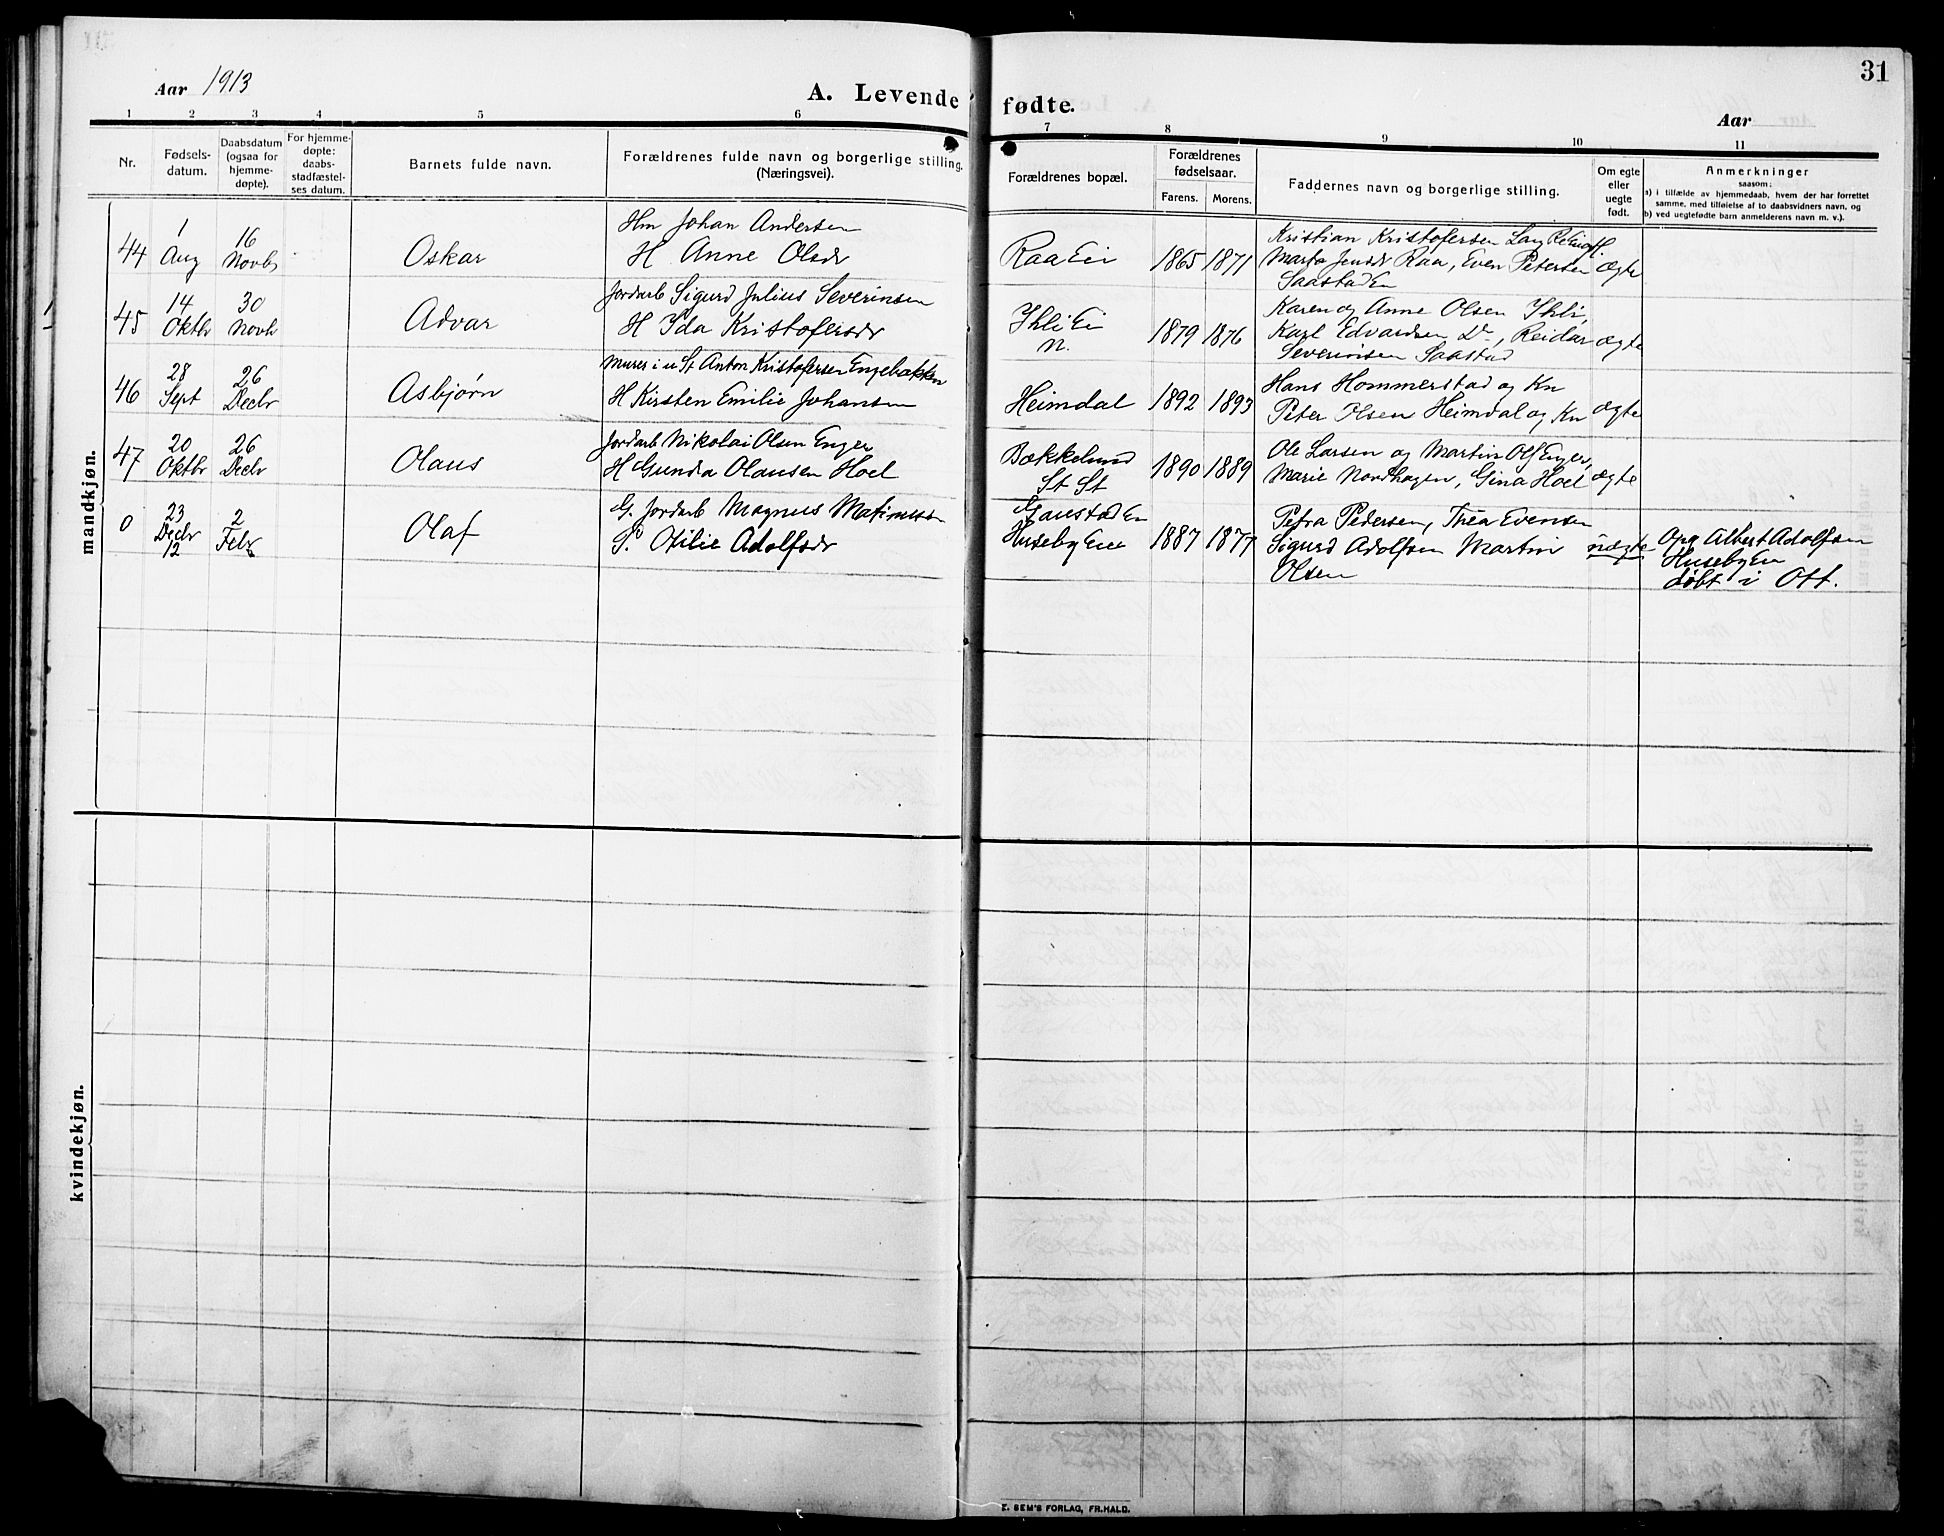 31
Aar 1913
A. Levende fødte.
Aar
1 2 3 4 5 6 7 8 9 10 11
Nr.
Fødsels-
datum.
Daabsdatum
(ogsaa for
hjemme-
døpte).
For hjemme-
døpte:
daabs-
stadfæstel-
ses datum.
Barnets fulde navn.
Forældrenes fulde navn og borgerlige stilling.
(Næringsvei).
Forældrenes bopæl.
Forældrenes
fødselsaar.
Farens. Morens.
Faddernes navn og borgerlige stilling.
Om egte
eller
uegte
født.
Anmerkninger
saasom:
a) i tilfælde av hjemmedaab, hvem der har forrettet
samme, med tilføielse af to daabsvidners navn, og
b) ved uegtefødte barn anmelderens navn m. v.).
mandkjøn.
44
1
Aug
16
Novb
Oskar
Hm Johan Andersen
H Anne Olsdr
Raa Ei
1865 1871
Kristian Kristofersen
Marta Jensdr Raa, Even Petersen
Saastad En
ægte
45
14
Oktbr
30
Novb
Advar
Jordarb Sigurd Julius Severinsen
H Ida Kristofersdr
Ihli Ei
N.
1879 1876
Karen og Anne Olsen Ihli,
Karl Edvardsen Do, Reidar
Severinsen Saastad
ægte
46
28
Sept
26
Decbr
Asbjørn
Murer i u St Anton Kristofersen Engebakken
H Kirsten Emilie Johansen
Heimdal
1892 1893
Hans Hommerstad og Kn
Peter Olsen Heimdal og Kn
ægte
47
20
Oktbr
26
Decbr
Olaus
Jordarb Nikolai Olsen Enger
H Gunda Olausen Hoel
Bækkelund
St St
1890 1889
Ole Larsen og Martin Olsen Enger,
Marie Nordhagen, Gina Hoel
ægte
0
23
Decbr
12
2
Febr
Olaf
G. Jordarb Magnus
P. Otilie Adolfsdr
Gaustad En
Huseby Eie
1887 1877
Petra Pedersen, Thea Evensen
Sigurd Adolfsen Martin
Olsen
uægte
Opg Albert Adolfsen
Huseby En
døbt i Ott.
kvindekjøn.
E. SEM'S FORLAG, FR.HALD.